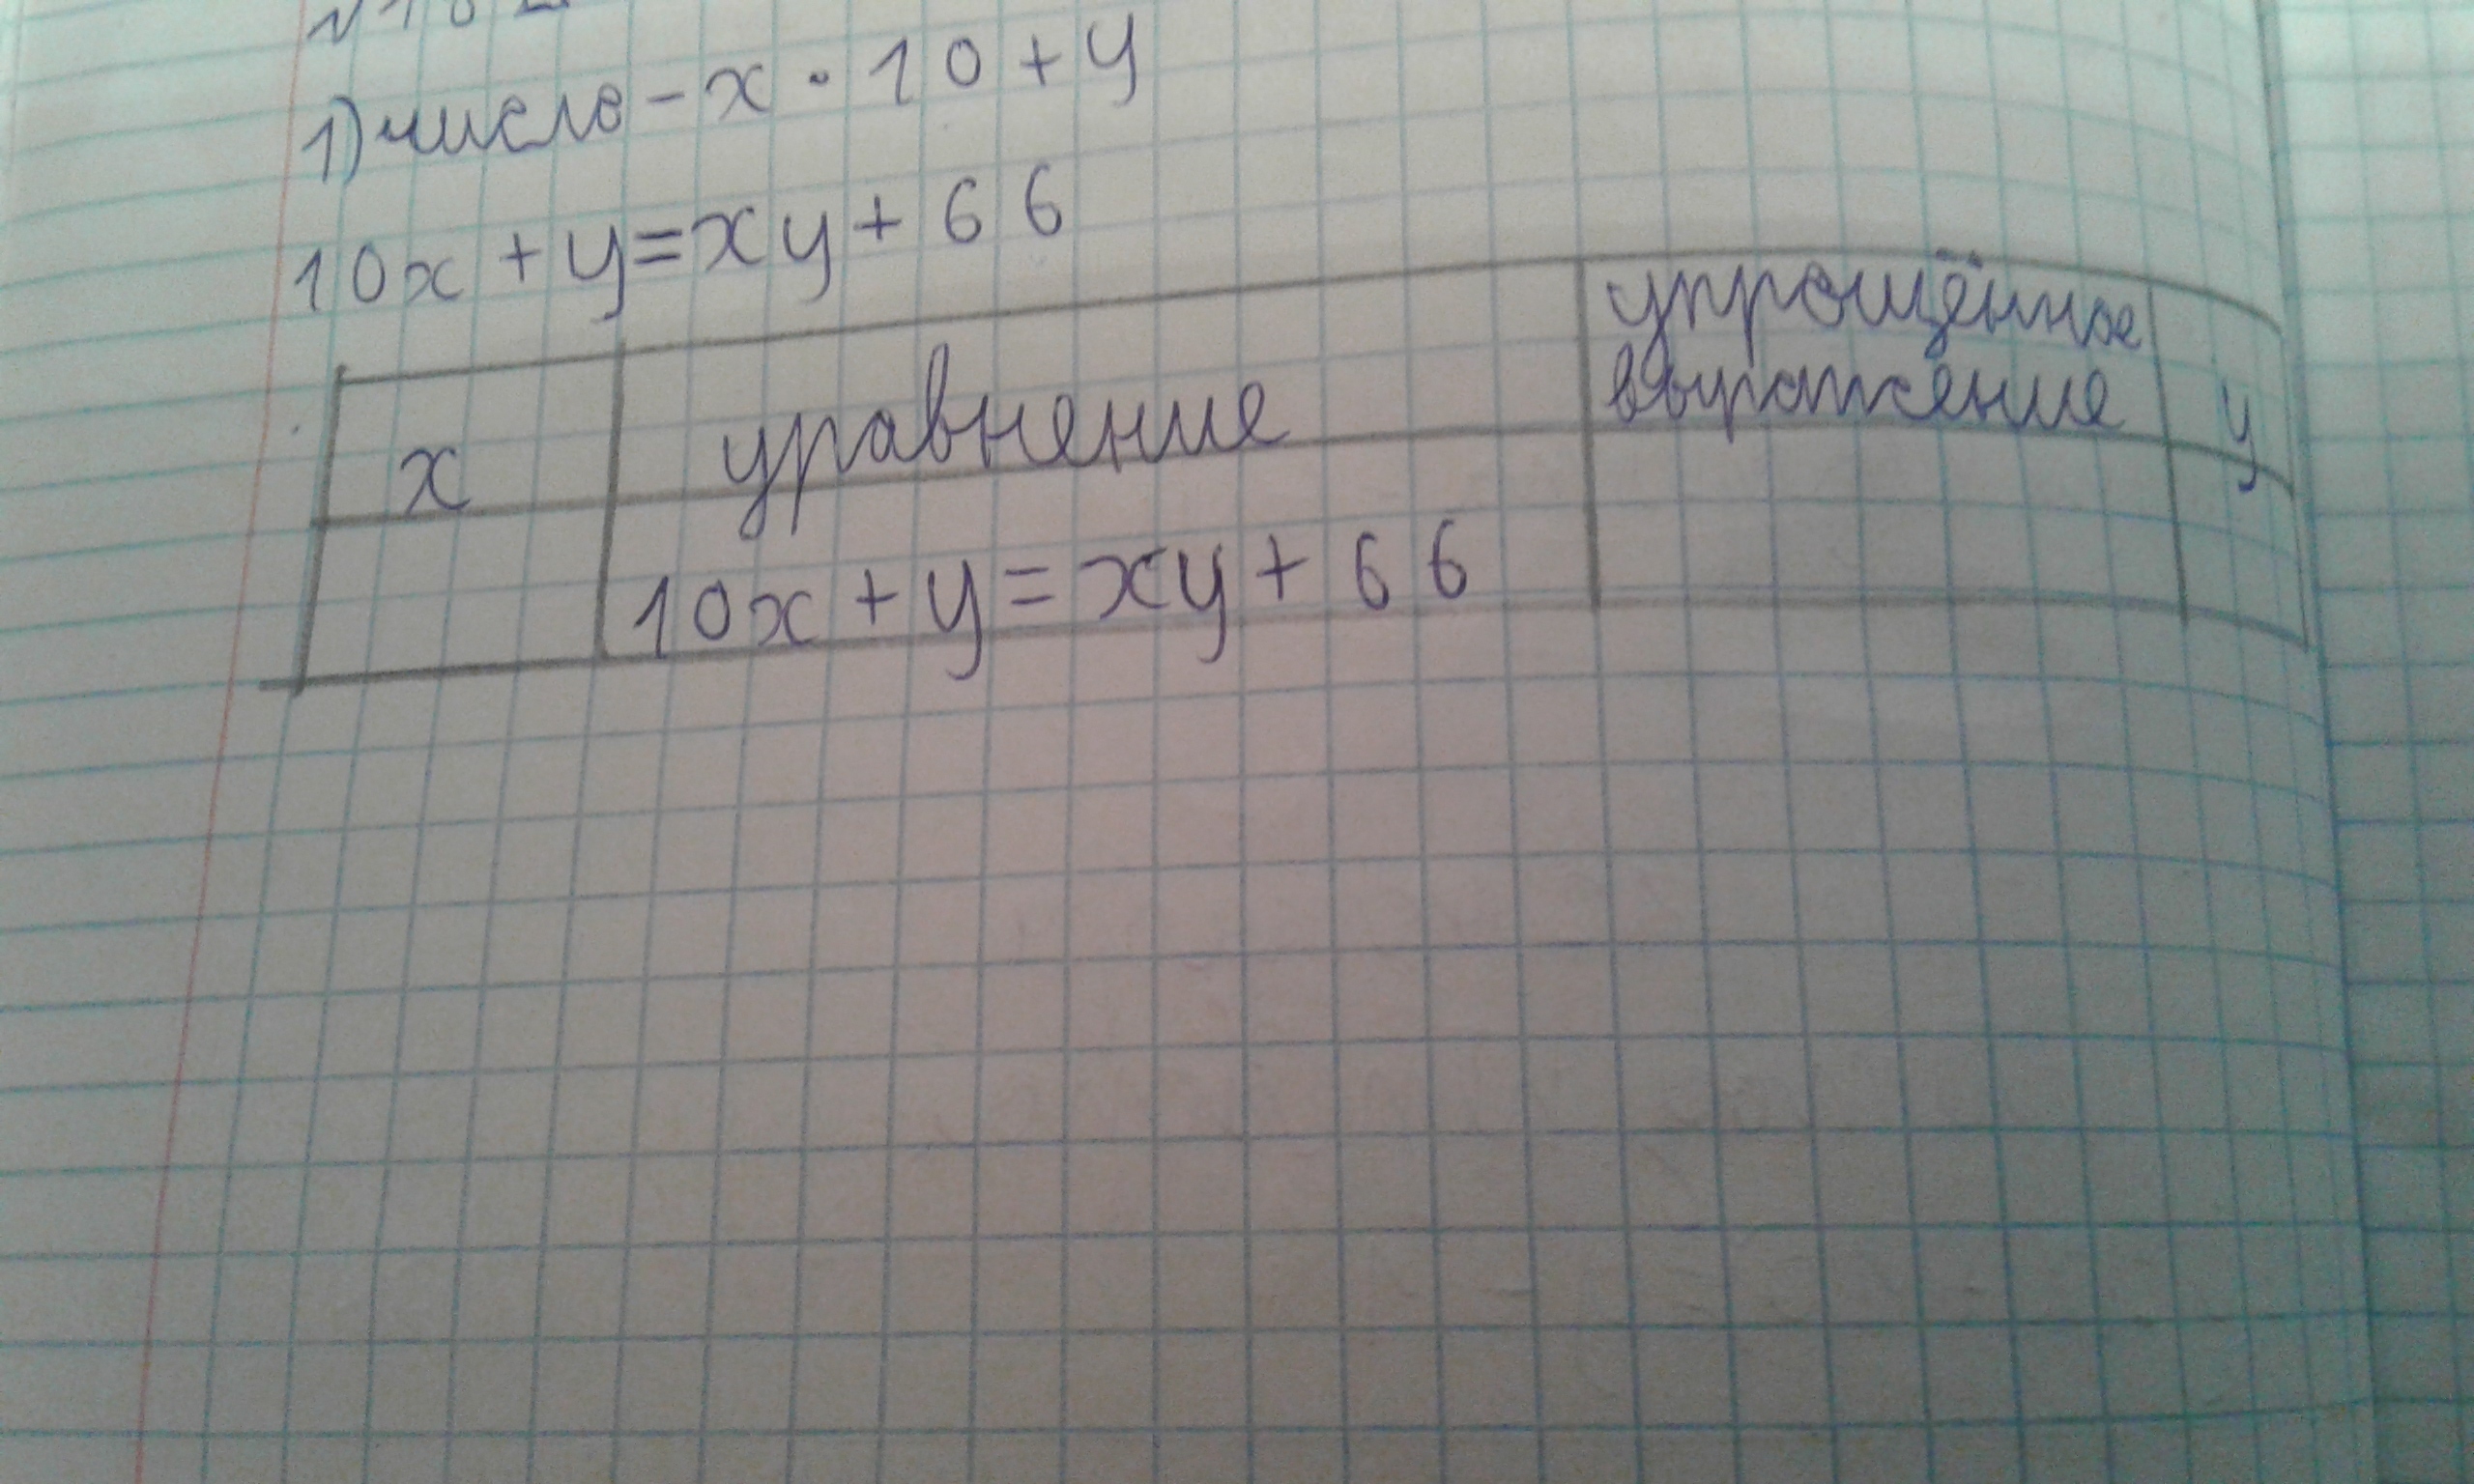 1) число - x · 10 + y
10x + y = xy + 66
x уравнение упрощённое выражение y
10x + y = xy + 66